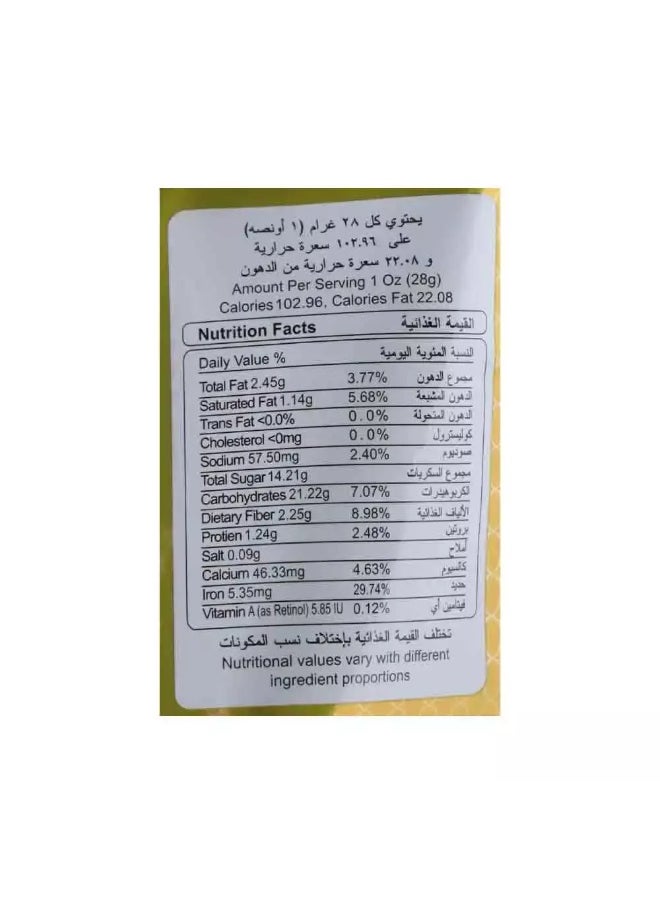 يحتوي كل ٢٨ غرام (١ أونصه)
على ١٠٢.٩٦ سعرة حرارية
و ٢٢.٠٨ سعرة حرارية من الدهون
Amount Per Serving 1 Oz (28g)
Calories 102.96, Calories Fat 22.08
Nutrition Facts القيمة الغذائية
Daily Value % النسبة المئوية اليومية
Total Fat 2.45g 3.77% مجموع الدهون
Saturated Fat 1.14g 5.68% الدهون المشبعة
Trans Fat <0.0% 0.0% الدهون المتحولة
Cholesterol <0mg 0.0% كوليسترول
Sodium 57.50mg 2.40% صوديوم
Total Sugar 14.21g مجموع السكريات
Carbohydrates 21.22g 7.07% الكربوهيدرات
Dietary Fiber 2.25g 8.98% الألياف الغذائية
Protien 1.24g 2.48% بروتين
Salt 0.09g أملاح
Calcium 46.33mg 4.63% كالسيوم
Iron 5.35mg 29.74% حديد
Vitamin A (as Retinol) 5.85 IU 0.12% فيتامين أي
تختلف القيمة الغذائية بإختلاف نسب المكونات
Nutritional values vary with different
ingredient proportions